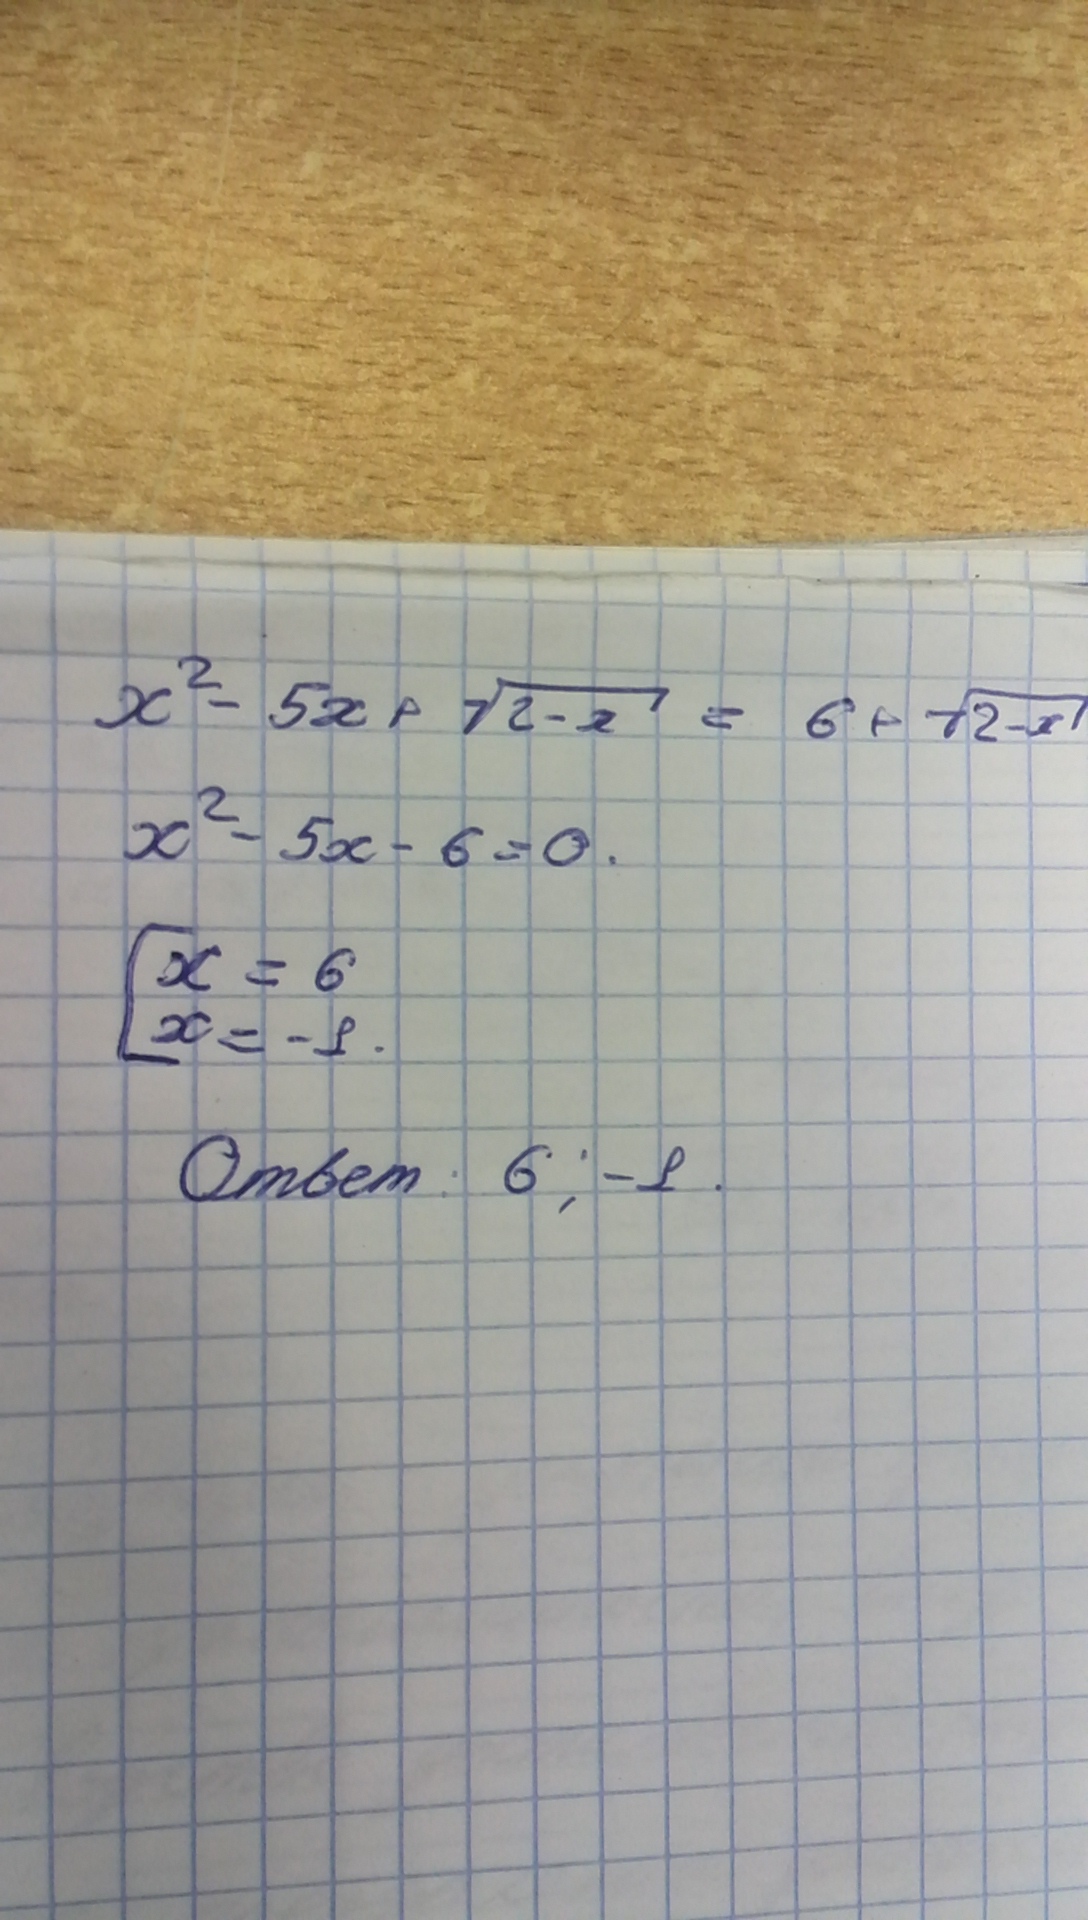 x² - 5x + √(2-x) = 6 + √(2-x)
x² - 5x - 6 = 0.
[ x = 6
x = -1.
Ответ: 6; -1.